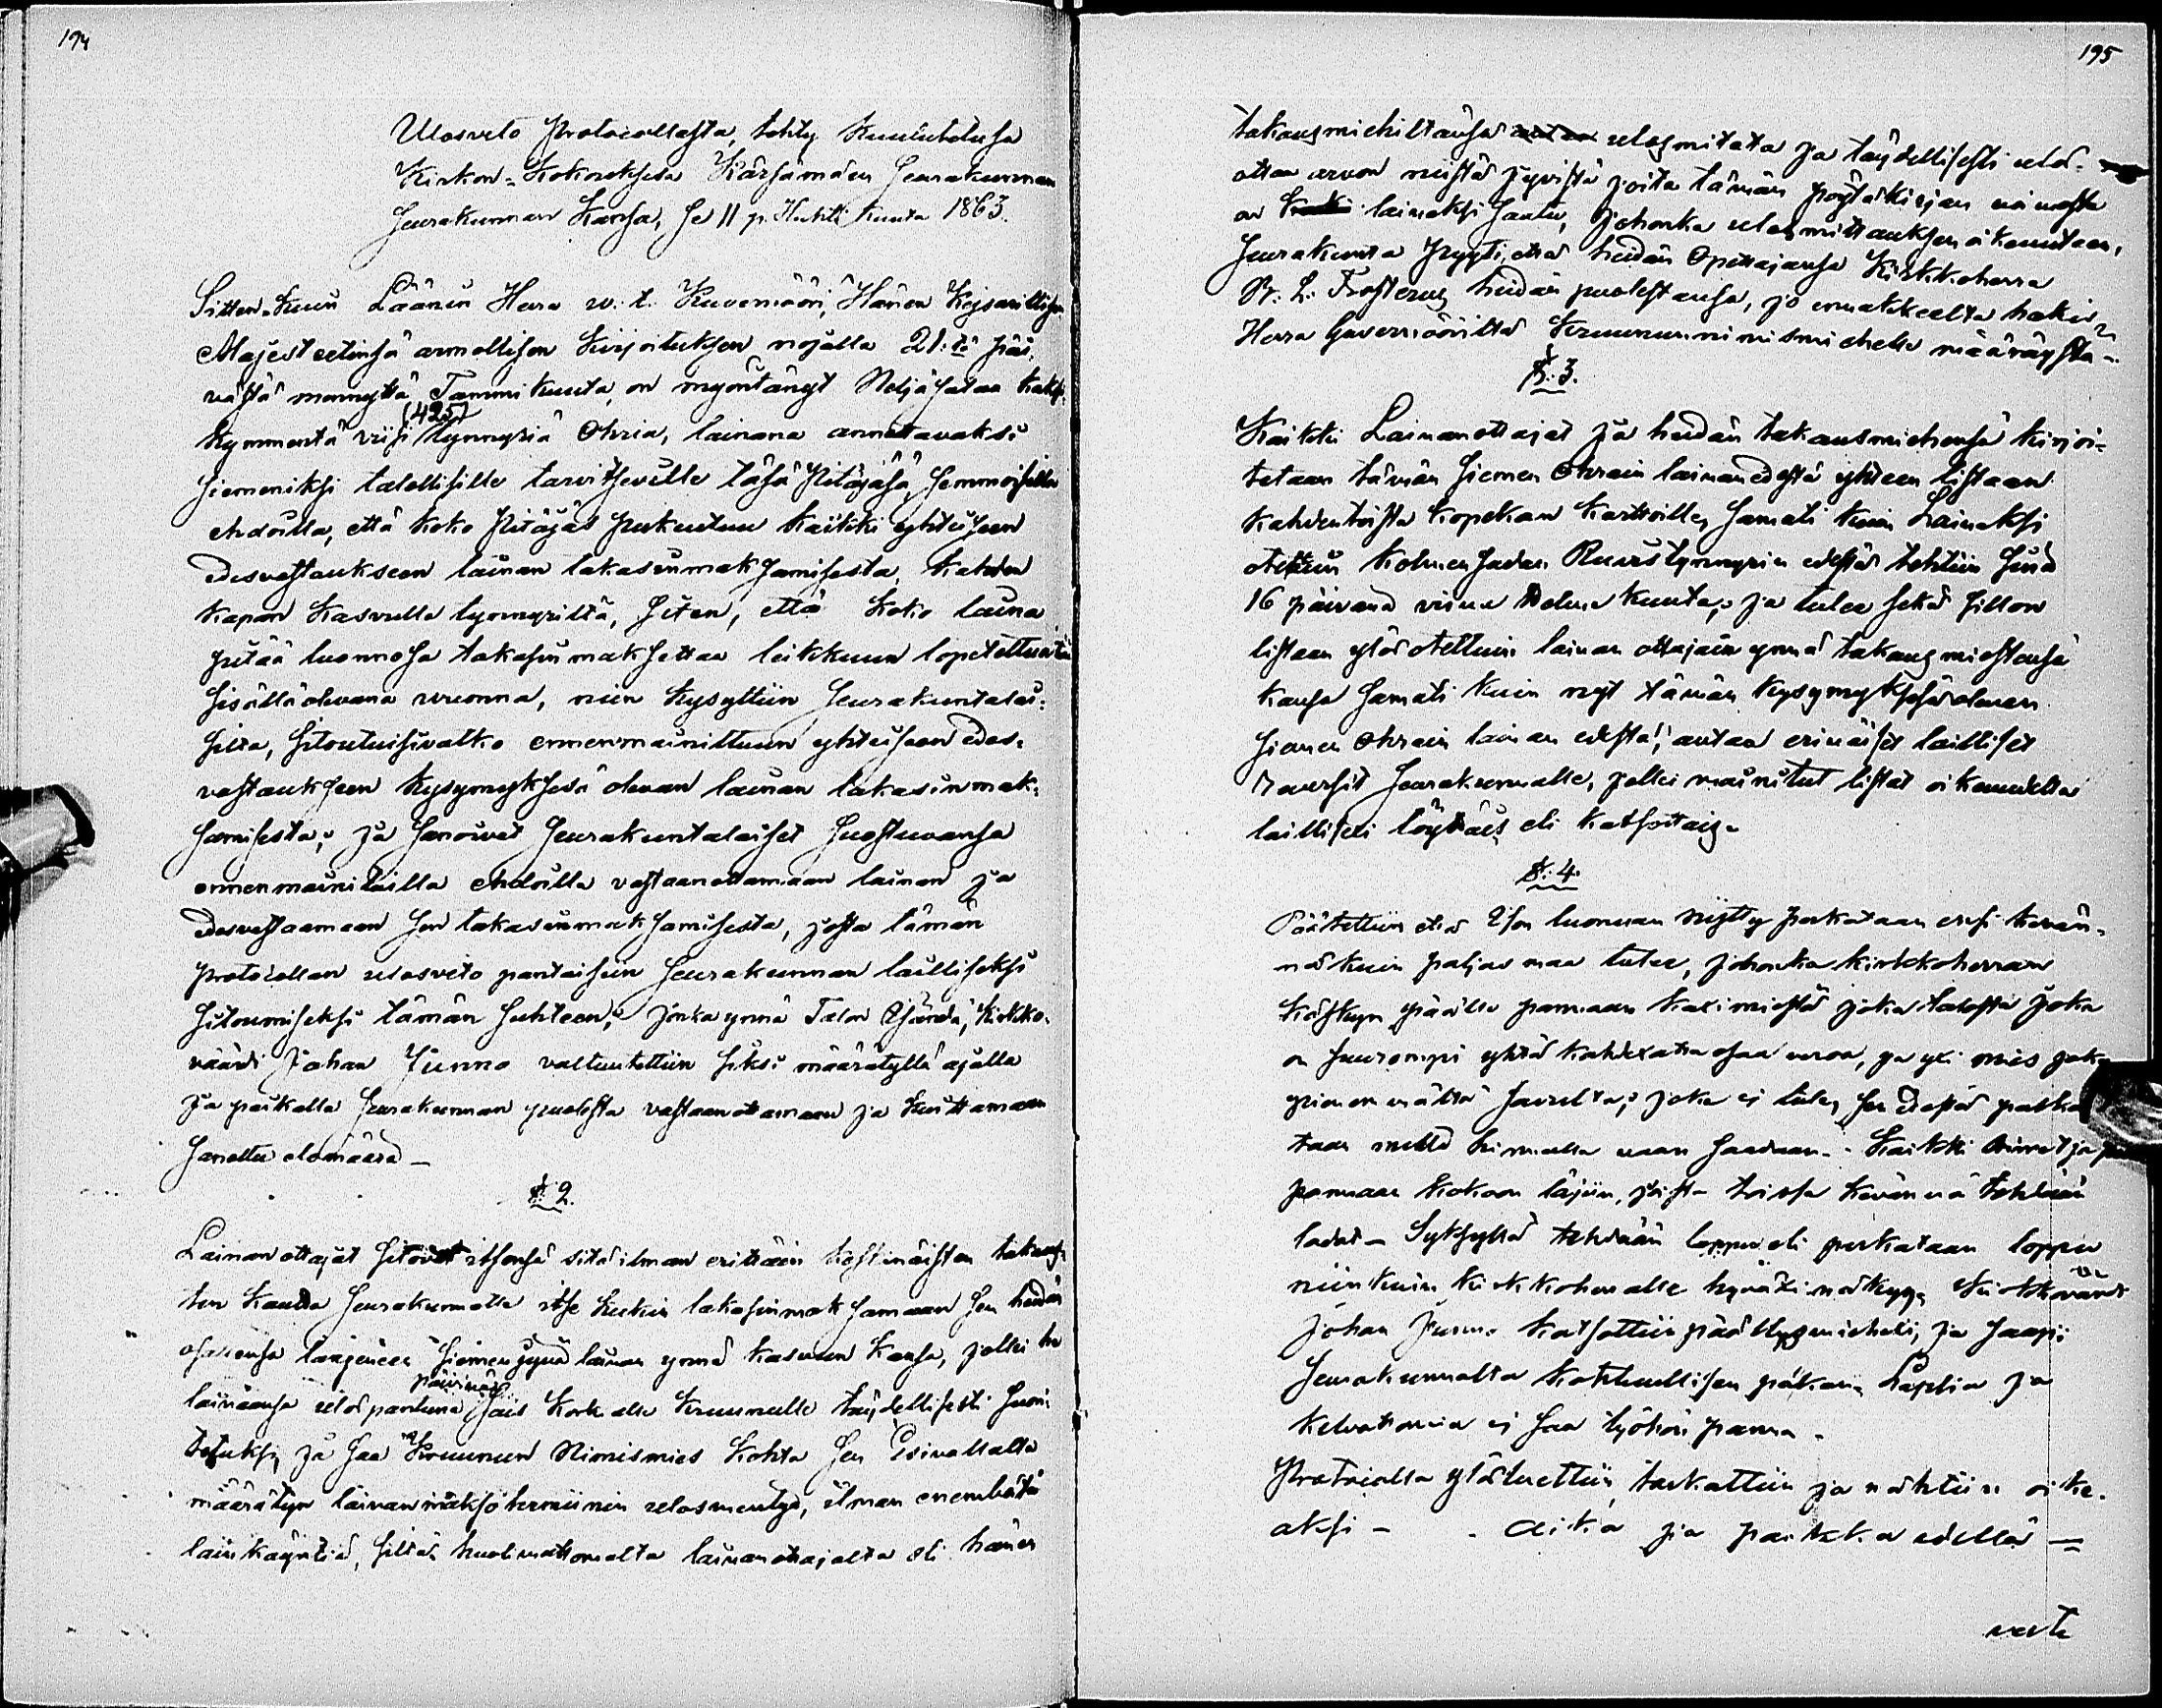 194
Ulosveto Protocollasta, tehty Kuulutetusa
Kirkon-Kokouksesa Kärsämäen Seurakunnan
Seurakunnan Kansa, se 11 p. Huhti Kuuta 1863.
Sitten kuin Läänin Herra w. t. Kuvernööri, Hänen Keisarillisen
Majesteetinsä armollisen Kirjoituksen nojalla 21:tä päi-
västä mennyttä Tammikuuta, on myöntänyt Neljäsataa kaksi-
(425)
kymmentä viisi tynnyriä Ohria, lainana annettavaksi
siemeniksi talollisille tarvitseville täsä Pitäjäsä, semmoisella
ehdoilla, että koko Pitäjäs puhuttuu kaikki yhteiseen
edesvastaukseen lainan takasinmaksamisesta, kahden
kapan kasvulla tynnyriltä, siten, että koko laina
pitää luonnosa takasin maksettaa leikkuun lopetettua tä
sisälläolevana vuonna, niin kysyttiin seurakuntalai-
silta, sitoutuisivatko ennenmainittuun yhteiseen edes-
vastaukseen kysymyksesä olevan lainan takasinmak-
samisesta; ja sanoivat seurakuntalaiset suostuvansa
ennenmainituilla ehdoilla vastaanottamaan lainan ja
edesvastaamaan sen takasinmaksamisesta, josta tämän
protocollan ulosveto pantaisiin seurakunnan lailliseksi
sitoumiseksi tämän suhteen; jonka ynnä Talon Isändä, Kirkko-
väärdi Johan Junno valtuutettiin siksi määrätyllä ajalla
ja paikalla seurakunnan puolesta vastaanottamaan ja kuittamaan
sanottu elomäärä —
§: 2.
Lainan ottajat sitovat itsensä sitä ilman erittäin keskinäisten takaus-
ten kautta seurakunnalle itse kukin takasinmaksamaan sen heidän
osallensa langeneen siemen jyvä lainan ynnä kasvun kansa, jollei he
päivinä
lainaansa ulospantuna sais Korkialle Kruunulle täydellisesti suori-
tetuksi, ja saa Kruunun Nimismies kohta sen Esivallalta
määrätyn lainanmaksoterminin ulosmentyä, ilman enembätä
lainkäyntiä, siltä huolimattomalta lainanottajalta eli hänen
195
takausmiehiltänsä ulosmitata ja täydellisesti ulos-
ottaa arvon niistä jyvistä joita tämän pöytäkirjan voimasta
on lainaksi saatu, johonka ulosmittauksen oikeuteen,
seurakunta pyyti, että heidän Opettajansa Kirkkoherra
Br. L. Frosterus heidän puolestansa, jo ennakkoelta hakis
Herra Guvernööriltä Kruununnimismiehelle määräystä.
§: 3.
Kaikki Lainanottajat ja heidän takausmiehensä kirjoi-
tetaan tämän siemen Ohrain lainan edestä yhteen listaan
kahdentoista kopekan karttoille, samati kuin Lainaksi
otettuin kolmensadan Ruistynnyrin edestä tehtiin sinä
16 päivänä viime Helme kuuta; ja tulee sekä sillon
listaan ylösotettuin lainan ottajain ynnä takaus miestensä
kansa samati kuin nyt tämän kysymyksesä olevan
siemen Ohrain lainan edestä, antaa erinäiset lailliset
reversit seurakunnalle, jollei mainitut listat oikeudelta
laillisexi löytäis eli katsottais.
§: 4.
Päätettiin että Ison luonnan niitty perkataan ensi kevän-
nä kuin paljas maa tulee, johonka kirkkoherran
käskyn päälle pannaan kaxi miestä joka talosta joka
on suurempi yhtä kahdexatta osaa veroa, ja yxi mies joka
pienemmältä savulta; joka ei tule, sen edestä palka-
taan millä hinnalla vaan saadaan. Kaikki kivet ja
pannaan kokoon läjiin, joista toissa kevännä tehdään
ladat – Syksyllä tehdään loppu eli perkataan loppu
niinkuin kirkkoherralle hyväxi näkyy. Kirkkovärdi
Johan Junno katsottiin päällysmiehexi, ja saapi
seurakunnalta kohtuullisen palkan. Lapsia ja
kelvottomia ej saa työhön panna.
Protocolla ylösluettiin, tarkattiin ja nähtiin oike-
aksi – Aika ja paikka edellä —
verte